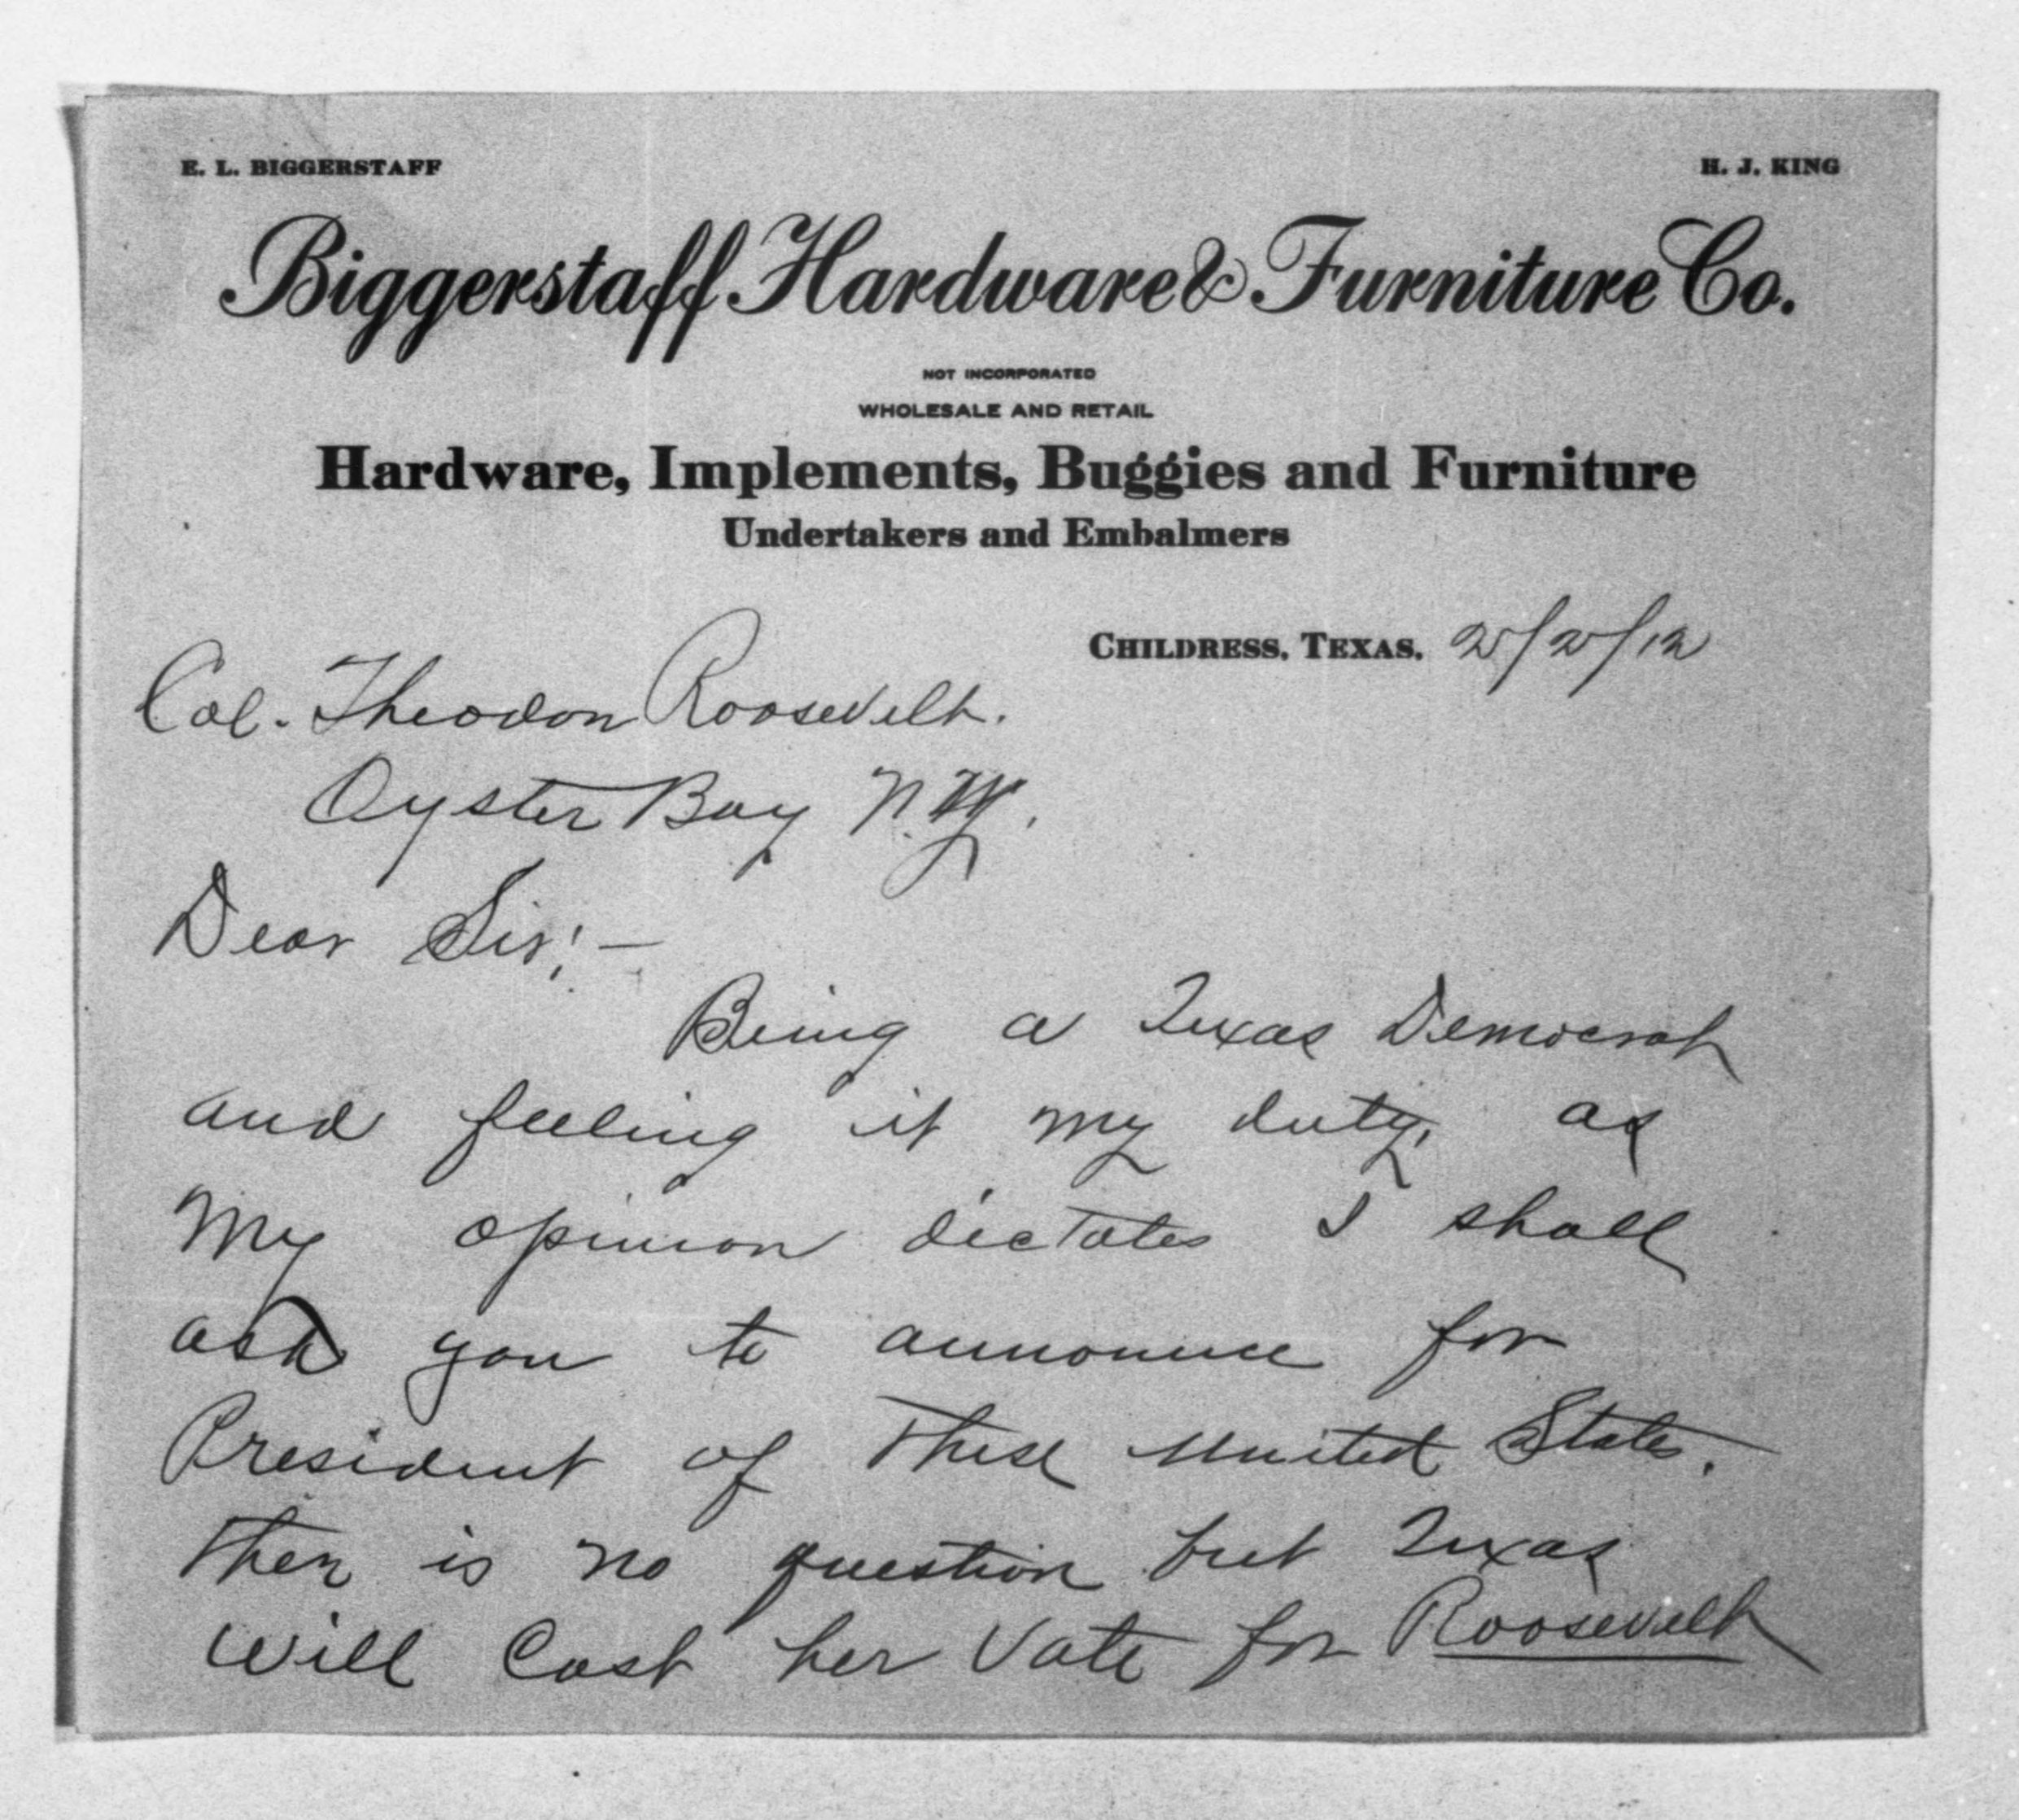 E. L. BIGGERSTAFF
H. J. KING
Biggerstaff Hardware & Furniture Co.
NOT INCORPORATED
WHOLESALE AND RETAIL
Hardware, Implements, Buggies and Furniture
Undertakers and Embalmers
CHILDRESS, TEXAS. 2/2/12
Col. Theodor Roosevelt.
Oyster Bay N.Y.
Dear Sir;—
Being a Texas Democrat
and feeling it my duty, as
my opinion dictates I shall
ask you to announce for
President of these United States.
Ther is no question but Texas
will Cast her Vote for Roosevelt